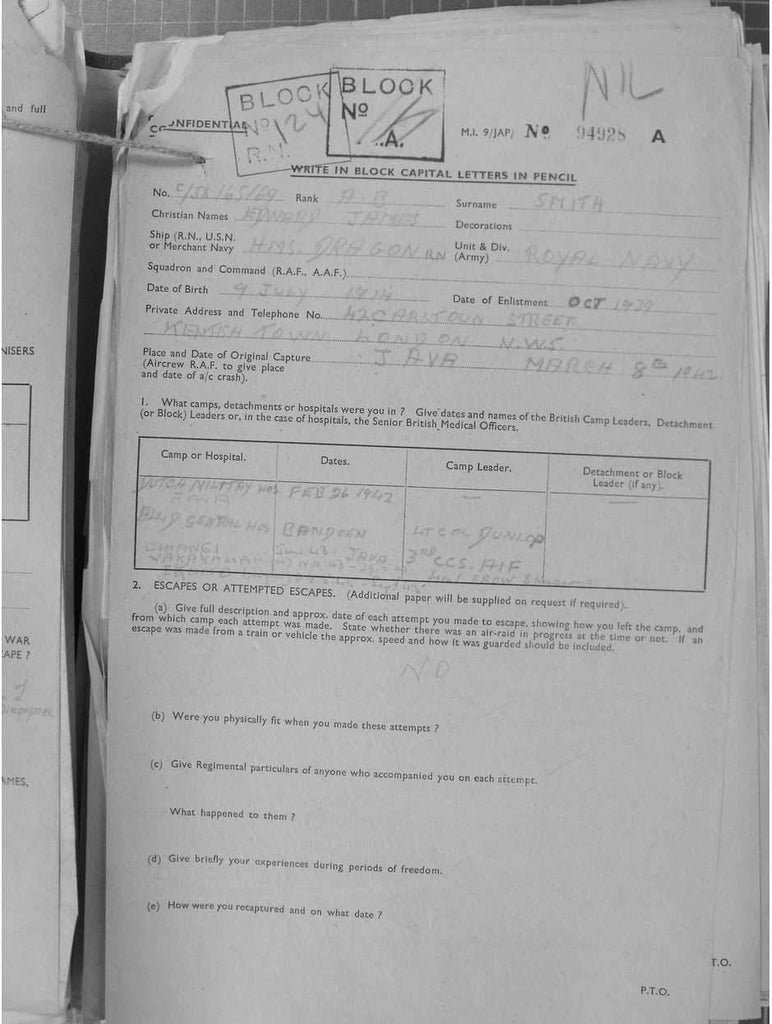 and full
NISERS
WAR
APE ?
of
Singapore
AMES,
BLOCK
No 124
R.N.
BLOCK
No
A.
NIL
CONFIDENTIAL
M.I. 9/JAP/ No 94928 A
WRITE IN BLOCK CAPITAL LETTERS IN PENCIL
No. C/JX 165169 Rank A.B Surname SMITH
Christian Names EDWARD JAMES Decorations
Ship (R.N., U.S.N. or Merchant Navy HMS. DRAGON RN Unit & Div. (Army) ROYAL NAVY
Squadron and Command (R.A.F., A.A.F.)
Date of Birth 9 JULY 1914 Date of Enlistment OCT 1939
Private Address and Telephone No. 42 STREET
KENTISH TOWN LONDON N.W5
Place and Date of Original Capture JAVA MARCH 8TH 1942
(Aircrew R.A.F. to give place
and date of a/c crash).
1. What camps, detachments or hospitals were you in ? Give dates and names of the British Camp Leaders, Detachment
(or Block) Leaders or, in the case of hospitals, the Senior British Medical Officers.
Camp or Hospital. Dates. Camp Leader. Detachment or Block
Leader (if any).
MILITAY HOS FEB 26 1942 —
HOS BANDOEN LT COL DUNLOP
JAVA 3RD CCS. AIF
2. ESCAPES OR ATTEMPTED ESCAPES. (Additional paper will be supplied on request if required).
(a) Give full description and approx. date of each attempt you made to escape, showing how you left the camp, and
from which camp each attempt was made. State whether there was an air-raid in progress at the time or not. If an
escape was made from a train or vehicle the approx. speed and how it was guarded should be included.
NO
(b) Were you physically fit when you made these attempts ?
(c) Give Regimental particulars of anyone who accompanied you on each attempt.
What happened to them ?
(d) Give briefly your experiences during periods of freedom.
(e) How were you recaptured and on what date ?
T.O.
P.T.O.